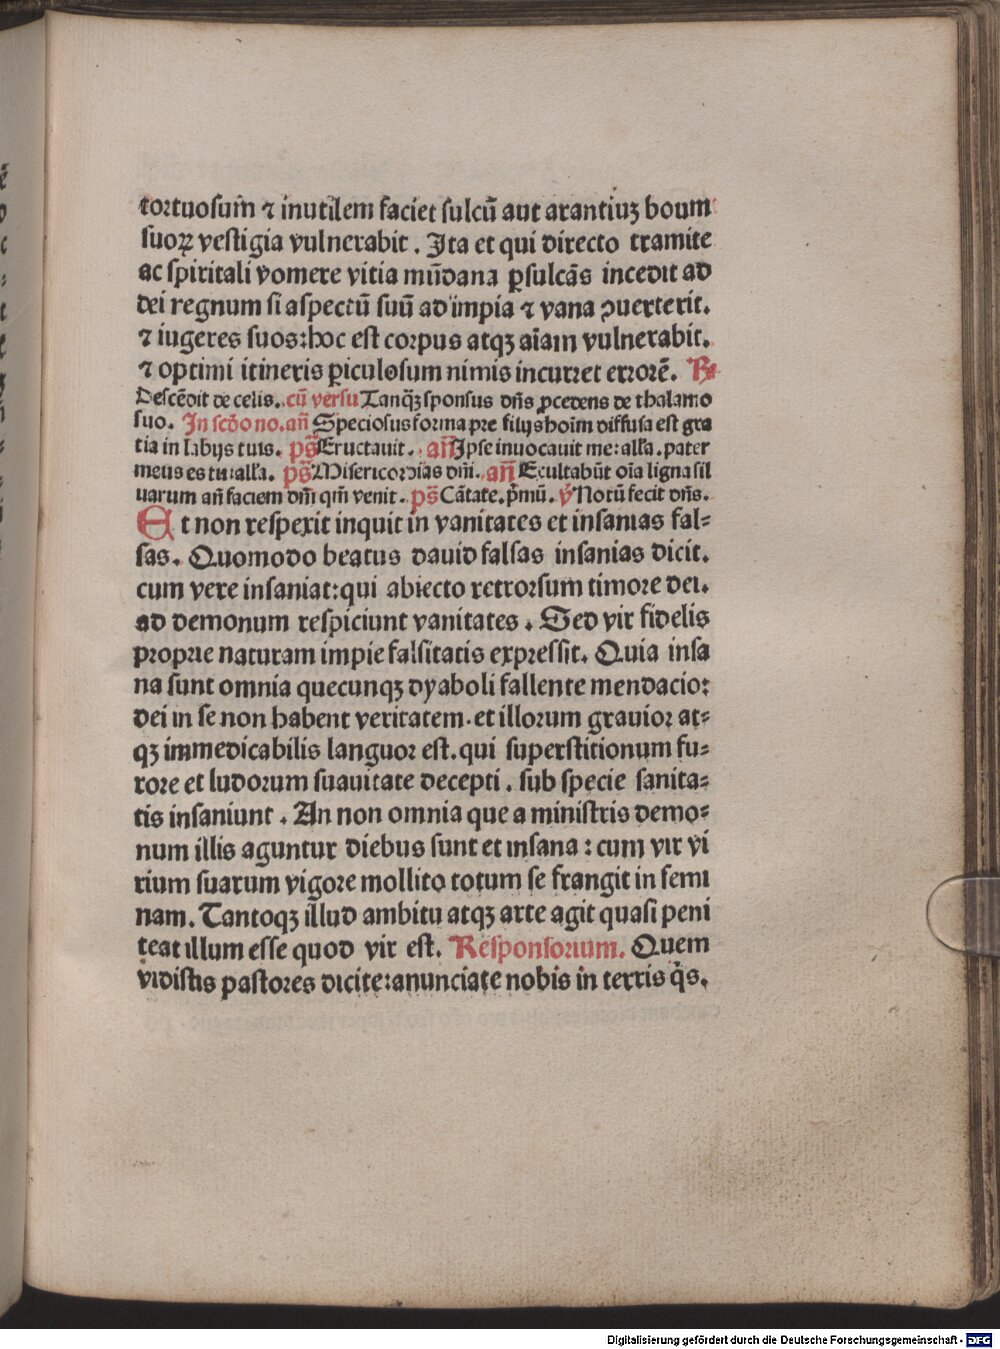 tortuosum̄ ⁊ inutilem faciet sulcū aut arantiuꝫ boum
suoꝝ vestigia vulnerabit . Ita et qui directo tramite
ac spiritali vomere vitia mūdana ꝑsulcās incedit ad
dei regnum si aspectū suū ad impia ⁊ vana ꝯuerterit.
⁊ iugeres suos:hoc est corpus atqꝫ aīam vulnerabit.
⁊ optimi itineris ꝑiculosum nimis incurret errorē. ℟
Descēdit de celis. cū versu Tanqꝫ sponsus dn̄s ꝓcedens de thalamo
suo. In scdo no. an̄ Speciosus forma pre filijs hoīm diffusa est gra
tia in labijs tuis. ps̄ Eructauit. an̄ Ipse inuocauit me: alla. pater
meus es tu:alla. ps̄ Misericordias dn̄i. an̄ Exultabūt oīa ligna sil
uarum an̄ faciem dn̄i qm̄ venit. ps̄ Cātate. p̄mū. ꝟ Notū fecit dn̄s.
Et non respexit inquit in vanitates et insanias fal⸗
sas. Quomodo beatus dauid falsas insanias dicit.
cum vere insaniat:qui abiecto retrorsum timore dei.
ad demonum respiciunt vanitates . Sed vir fidelis
proprie naturam impie falsitatis expressit. Quia insa
na sunt omnia quecunqꝫ dyaboli fallente mendacio:
dei in se non habent veritatem. et illorum grauior at⸗
qꝫ immedicabilis languor est. qui superstitionum fu⸗
rore et ludorum suauitate decepti . sub specie sanita⸗
tis insaniunt . An non omnia que a ministris demo⸗
num illis aguntur diebus sunt et insana : cum vir vi
rium suarum vigore mollito totum se frangit in femi
nam. Tantoqꝫ illud ambitu atqꝫ arte agit quasi peni
teat illum esse quod vir est. Responsorium. Quem
vidistis pastores dicite:anunciate nobis in terris q̄s.
Digitalisierung gefördert durch die Deutsche Forschungsgemeinschaft - DFG